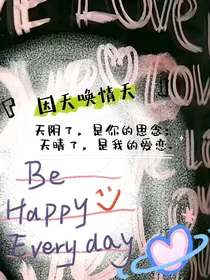 LOVE
Love
『因天唤情天』
天阴了，是你的思念；
天晴了，是我的爱恋。
Be
Happy
Every day